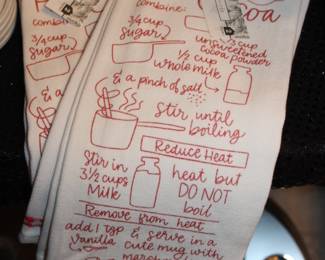 Cocoa
combine:
3/4 cup
Sugar
1/3 cup
unsweetened
cocoa powder
1/2 cup
whole milk
& a pinch of salt
Stir until
boiling
Reduce Heat
Stir in
3 1/2 cups
Milk
heat but
DO NOT
boil
Remove from heat
add 1 tsp
Vanilla
& serve in a
cute mug with
combine:
3/4 cup
sugar